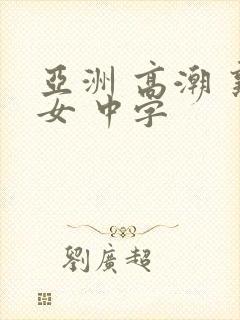 亞洲 高潮
女 中字
劉廣超